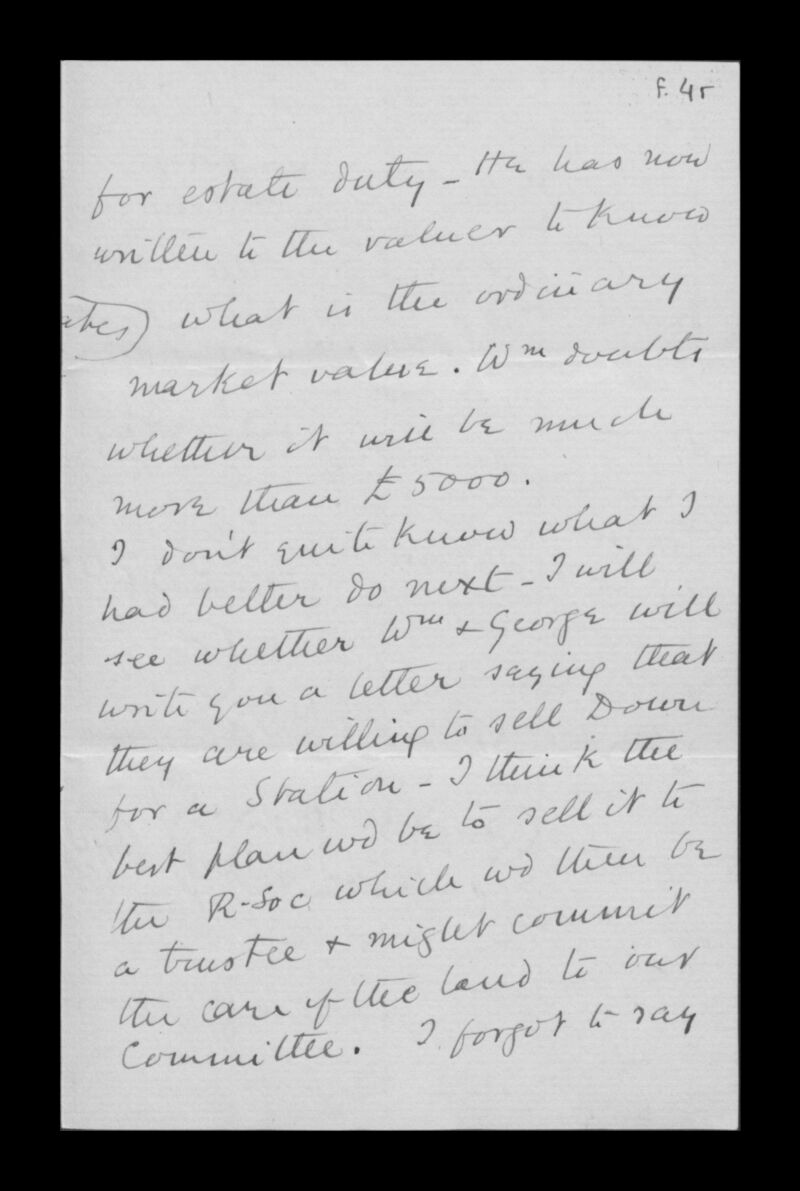 f. 4r
for estate duty – He has now
written to the valuer to know
what is the ordinary
market value. Wm doubts
whether it will be much
more than £5000.
I don't quite know what I
had better do next – I will
see whether Wm & George will
write you a letter saying that
they are willing to sell Down
for a Station – I think the
best plan wd be to sell it to
the R-Soc which wd then be
a trustee & might commit
the care of the land to our
Committee. I forgot to say